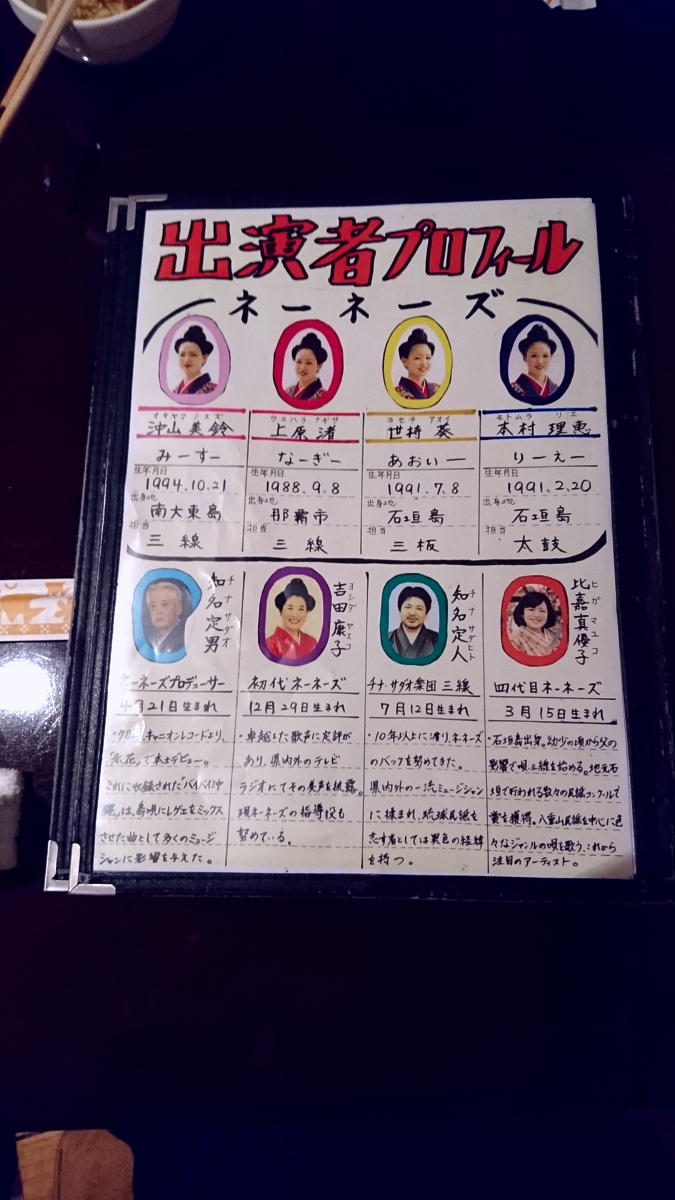 出演者プロフィール
ネーネーズ
オキヤマ ミスズ
沖山美鈴
みーすー
生年月日
1994.10.21
出身地
南大東島
担当
三線
ウエハラ ナギサ
上原渚
なーぎー
生年月日
1988.9.8
出身地
那覇市
担当
三線
ヨモチ アオイ
世持葵
あおぃー
生年月日
1991.7.8
出身地
石垣島
担当
三板
モトムラ リエ
本村理恵
りーえー
生年月日
1991.2.20
出身地
石垣島
担当
太鼓
知名定男
チナ サダオ
ネーネーズプロデューサー
4月21日生まれ
レコードより、
「赤花」で本土デビュー。
これに収録された「バイバイ沖
縄」は、島唄にレゲエをミックス
させた曲として多くのミュージ
シャンに影響を与えた。
吉田康子
ヨシダ ヤスコ
初代ネーネーズ
12月29日生まれ
・卓越した歌声に定評が
あり、県内外のテレビ
ラジオにてその美声を披露。
現ネーネーズの指導役も
努めている。
知名定人
チナ サダヒト
チナ・サダオ楽団 三線
7月12日生まれ
・10年以上に渡り、ネーネーズ
のバックを努めてきた。
県内外の一流ミュージシャン
に揉まれ、琉球民謡を
志す者としては異色の経緯
を持つ。
比嘉真優子
ヒガ マユコ
四代目ネーネーズ
3月15日生まれ
・石垣島出身。幼少の頃から父の
影響で唄三線を始める。地元石
垣で行われる数々の民謡コンクールで
賞を獲得。八重山民謡を中心に色
々なジャンルの唄を歌う、これから
注目のアーティスト。